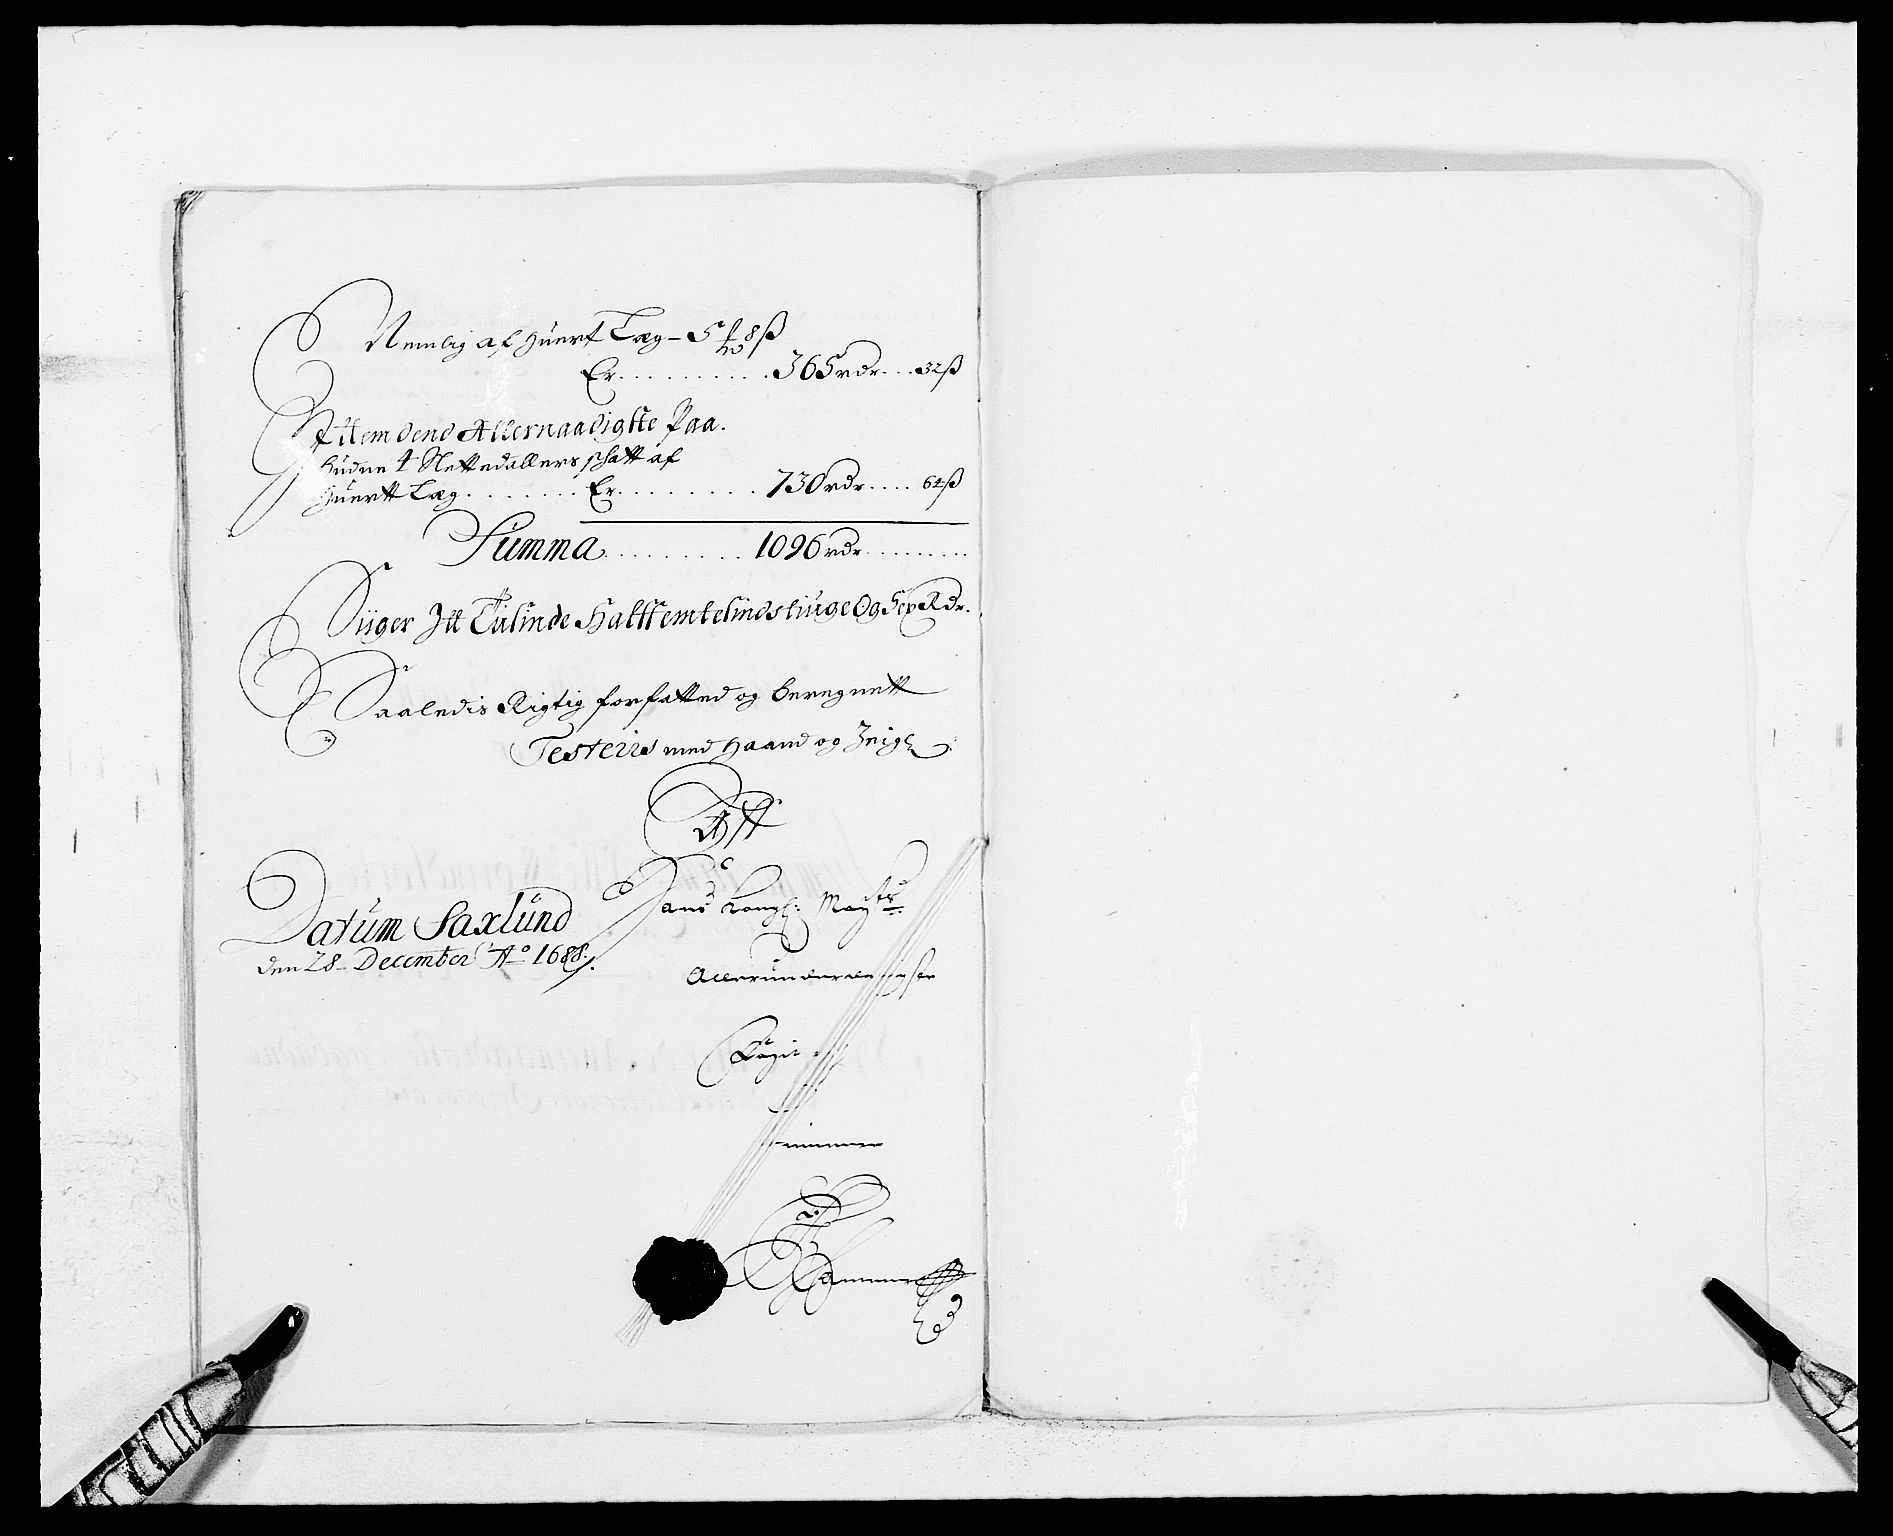 Nemlig af huert Læg – 5 ℔ 8 ß
Er . . . . . . . . . 365 rdr . . . 32 ß
Item dend Allernaadigste Paa-
budne 4 Slettedallers schatt af
huertt Læg . . . . . . . Er . . . . . . . . 730 rdr . . . . 64 ß
Summa . . . . . . . . . 1096 rdr . . . . . . . .
Siiger Itt Tusinde Halffemtesindstiuge Og Sex Rdr.
Saaledis Rigtig forfatted og beregnett
Testeris med haand og Zeigl
Aff
Hans Kongl: Mayts:
Allerunderdanigster
Datum Saxlund
den 28 December Ao 1688.
Fogit